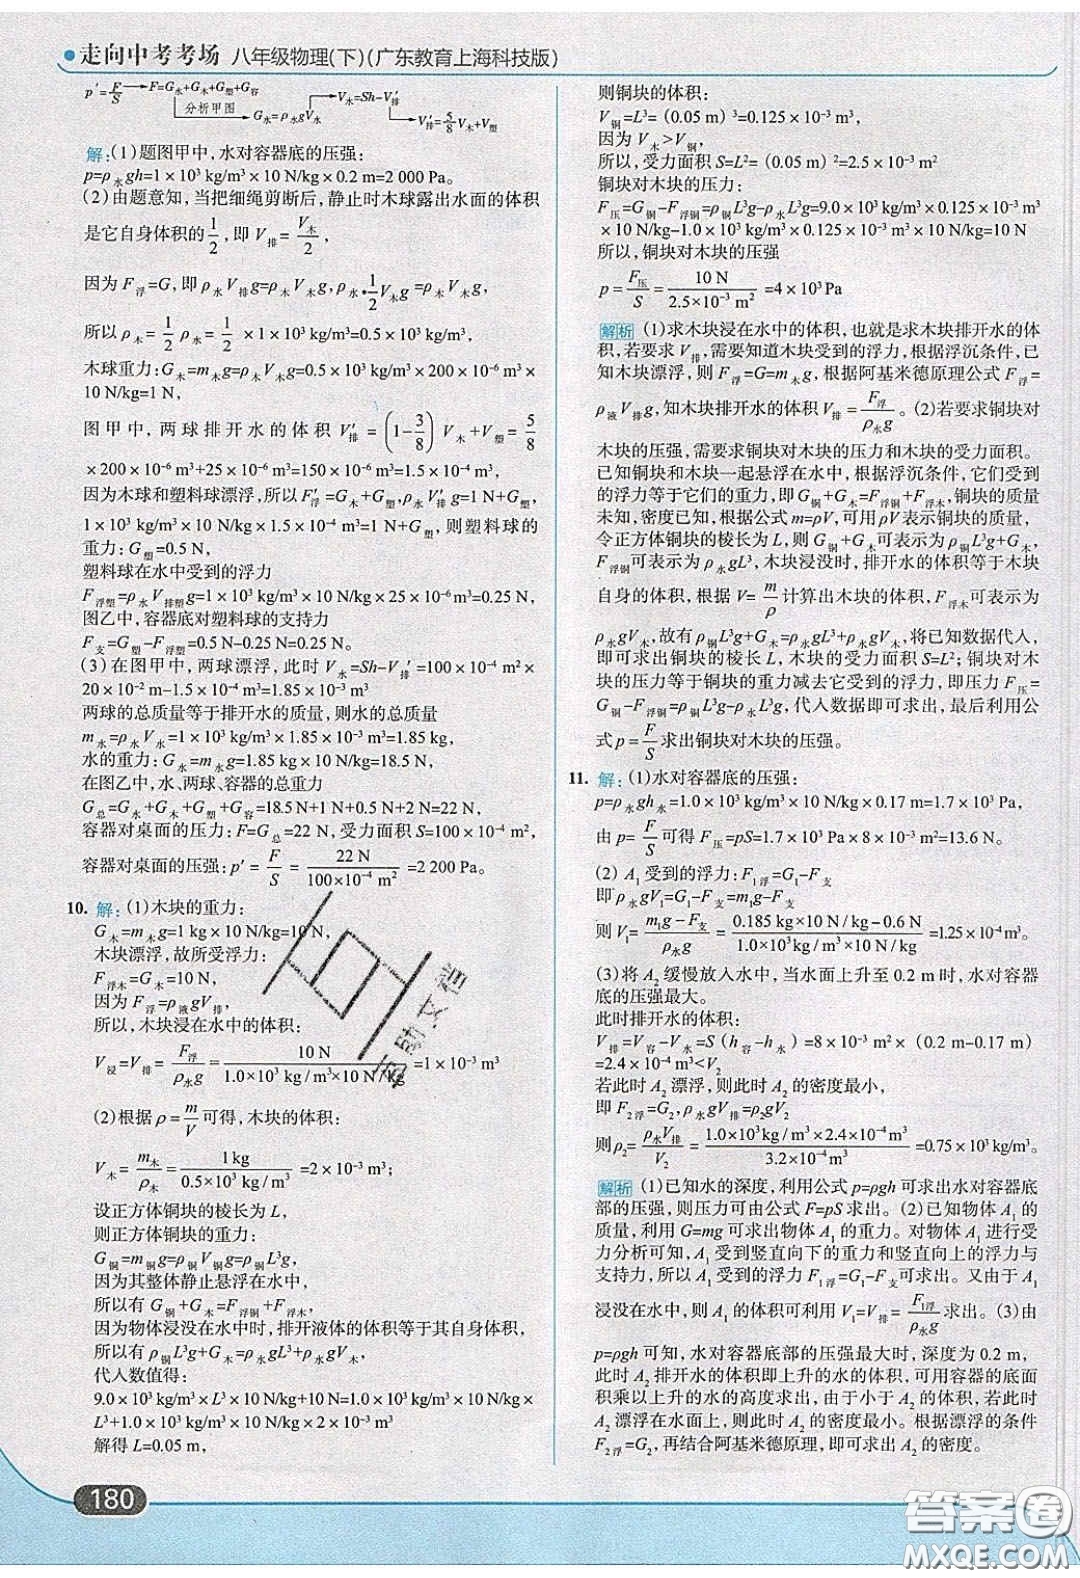 走向中考考场 八年级物理(下)(广东教育上海科技版)
p′=F/S→F=G水+G木+G塑+G容
分析甲图 G水=ρ水gV水 →V水=Sh-V′排
→V′排=5/8V木+V塑
解:(1)题图甲中,水对容器底的压强:
p=ρ水gh=1×10³ kg/m³×10 N/kg×0.2 m=2 000 Pa。
(2)由题意知,当把细绳剪断后,静止时木球露出水面的体积
是它自身体积的1/2,即V排=V木/2,
因为F浮=G,即ρ水V排g=ρ木V木g,ρ水·1/2V木g=ρ木V木g,
所以ρ木=1/2ρ水=1/2×1×10³ kg/m³=0.5×10³ kg/m³,
木球重力:G木=m木g=ρ木V木g=0.5×10³ kg/m³×200×10⁻⁶ m³×
10 N/kg=1 N,
图甲中,两球排开水的体积V′排=(1-3/8)V木+V塑=5/8
×200×10⁻⁶ m³+25×10⁻⁶ m³=150×10⁻⁶ m³=1.5×10⁻⁴ m³,
因为木球和塑料球漂浮,所以F′浮=G木+G塑,ρ水V′排g=1 N+G塑,
1×10³ kg/m³×10 N/kg×1.5×10⁻⁴ m³=1 N+G塑,则塑料球的
重力:G塑=0.5 N,
塑料球在水中受到的浮力
F浮塑=ρ水V排塑g=1×10³ kg/m³×10 N/kg×25×10⁻⁶ m³=0.25 N,
图乙中,容器底对塑料球的支持力
F支=G塑-F浮塑=0.5 N-0.25 N=0.25 N。
(3)在图甲中,两球漂浮,此时V水=Sh-V′排=100×10⁻⁴ m²×
20×10⁻² m-1.5×10⁻⁴ m³=1.85×10⁻³ m³
两球的总质量等于排开水的质量,则水的总质量
m水=ρ水V水=1×10³ kg/m³×1.85×10⁻³ m³=1.85 kg,
水的重力:G水=m水g=1.85 kg×10 N/kg=18.5 N,
在图乙中,水、两球、容器的总重力
G总=G水+G木+G塑+G容=18.5 N+1 N+0.5 N+2 N=22 N,
容器对桌面的压力:F=G总=22 N,受力面积S=100×10⁻⁴ m²,
容器对桌面的压强:p′=F/S=22 N/100×10⁻⁴ m²=2 200 Pa。
10. 解:(1)木块的重力:
G木=m木g=1 kg×10 N/kg=10 N,
木块漂浮,故所受浮力:
F浮木=G木=10 N,
因为F浮=ρ液gV排,
所以,木块浸在水中的体积:
V浸=V排=F浮/ρ水g=10 N/1.0×10³ kg/m³×10 N/kg=1×10⁻³ m³
(2)根据ρ=m/V可得,木块的体积:
V木=m木/ρ木=1 kg/0.5×10³ kg/m³=2×10⁻³ m³;
设正方体铜块的棱长为L,
则正方体铜块的重力:
G铜=m铜g=ρ铜V铜g=ρ铜L³g,
因为其整体静止悬浮在水中,
所以有G铜+G木=F浮铜+F浮木,
因为物体浸没在水中时,排开液体的体积等于其自身体积,
所以有ρ铜L³g+G木=ρ水gL³+ρ水gV木,
代入数值得:
9.0×10³ kg/m³×L³×10 N/kg+10 N=1.0×10³ kg/m³×10 N/kg×
L³+1.0×10³ kg/m³×10 N/kg×2×10⁻³ m³
解得L=0.05 m,
则铜块的体积:
V铜=L³=(0.05 m)³=0.125×10⁻³ m³
因为V木>V铜,
所以,受力面积S=L²=(0.05 m)²=2.5×10⁻³ m²
铜块对木块的压力:
F压=G铜-F浮铜=ρ铜L³g-ρ水L³g=9.0×10³ kg/m³×0.125×10⁻³ m³
×10 N/kg-1.0×10³ kg/m³×0.125×10⁻³ m³×10 N/kg=10 N
所以,铜块对木块的压强
p=F压/S=10 N/2.5×10⁻³ m²=4×10³ Pa
解析 (1)求木块浸在水中的体积,也就是求木块排开水的体
积,若要求V排,需要知道木块受到的浮力,根据浮沉条件,已
知木块漂浮,则F浮=G=m木g,根据阿基米德原理公式F浮=
ρ液V排g,知木块排开水的体积V排=F浮/ρ水g。(2)若要求铜块对
木块的压强,需要求铜块对木块的压力和木块的受力面积。
已知铜块和木块一起悬浮在水中,根据浮沉条件,它们受到
的浮力等于它们的重力,即G铜+G木=F浮铜+F浮木,铜块的质量
未知,密度已知,根据公式m=ρV,可用ρV表示铜块的质量,
令正方体铜块的棱长为L,则G铜+G木可表示为ρ铜L³g+G木,
F浮铜可表示为ρ水gL³,木块浸没时,排开水的体积等于木块
自身的体积,根据V=m/ρ计算出木块的体积,F浮木可表示为
ρ水gV木,故有ρ铜L³g+G木=ρ水gL³+ρ水gV木,将已知数据代入,
即可求出铜块的棱长L,木块的受力面积S=L²;铜块对木
块的压力等于铜块的重力减去它受到的浮力,即压力F压=
G铜-F浮铜=ρ铜L³g-ρ水L³g,代入数据即可求出,最后利用公
式p=F/S求出铜块对木块的压强。
11. 解:(1)水对容器底的压强:
p=ρ水gh水=1.0×10³ kg/m³×10 N/kg×0.17 m=1.7×10³ Pa,
由p=F/S可得F压=pS=1.7×10³ Pa×8×10⁻³ m²=13.6 N。
(2) A₁受到的浮力:F₁浮=G₁-F支
即ρ水gV₁=G₁-F支=m₁g-F支
则V₁=m₁g-F支/ρ水g=0.185 kg×10 N/kg-0.6 N/1.0×10³ kg/m³×10 N/kg=1.25×10⁻⁴m³。
(3)将A₂缓慢放入水中,当水面上升至0.2 m时,水对容器
底的压强最大。
此时排开水的体积:
V排=V容-V水=S(h容-h水)=8×10⁻³ m²×(0.2 m-0.17 m)
=2.4×10⁻⁴ m³<V₂
若此时A₂漂浮,则此时A₂的密度最小,
即F₂浮=G₂,ρ水gV排=ρ₂gV₂
则ρ₂=ρ水V排/V₂=1.0×10³kg/m³×2.4×10⁻⁴ m³/3.2×10⁻⁴ m³=0.75×10³ kg/m³。
解析 (1)已知水的深度,利用公式p=ρgh可求出水对容器底
部的压强,则压力可由公式F=pS求出。(2)已知物体A₁的
质量,利用G=mg可求出物体A₁的重力。对物体A₁进行受
力分析可知,A₁受到竖直向下的重力和竖直向上的浮力与
支持力,所以A₁受到的浮力F₁浮=G₁-F支可求出。又由于A₁
浸没在水中,则A₁的体积可利用V₁=V排=F₁浮/ρ水g求出。(3)由
p=ρgh可知,水对容器底部的压强最大时,深度为0.2 m,
此时A₂排开水的体积即上升的水的体积,可用容器的底面
积乘以上升的水的高度求出,由于小于A₂的体积,若此时
A₂漂浮在水面上,则此时A₂的密度最小。根据漂浮的条件
F₂浮=G₂,再结合阿基米德原理,即可求出A₂的密度。
180
答案圈
MXQE.COM